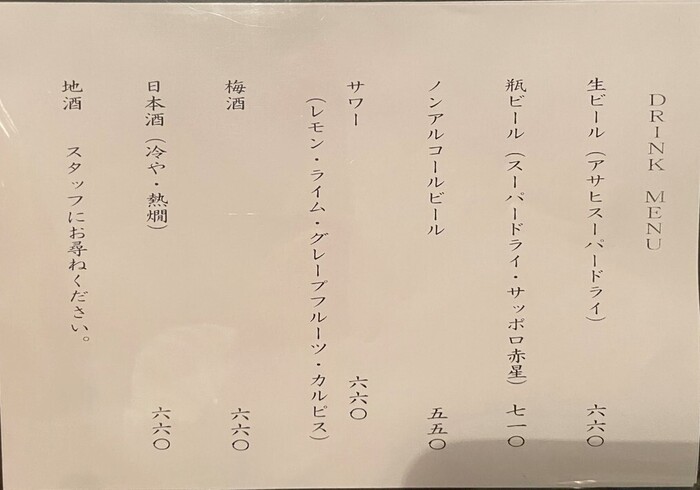 DRINK MENU
生ビール（アサヒスーパードライ） 六六〇
瓶ビール（スーパードライ・サッポロ赤星） 七一〇
ノンアルコールビール 五五〇
サワー 六六〇
（レモン・ライム・グレープフルーツ・カルピス）
梅酒 六六〇
日本酒（冷や・熱燗） 六六〇
地酒 スタッフにお尋ねください。